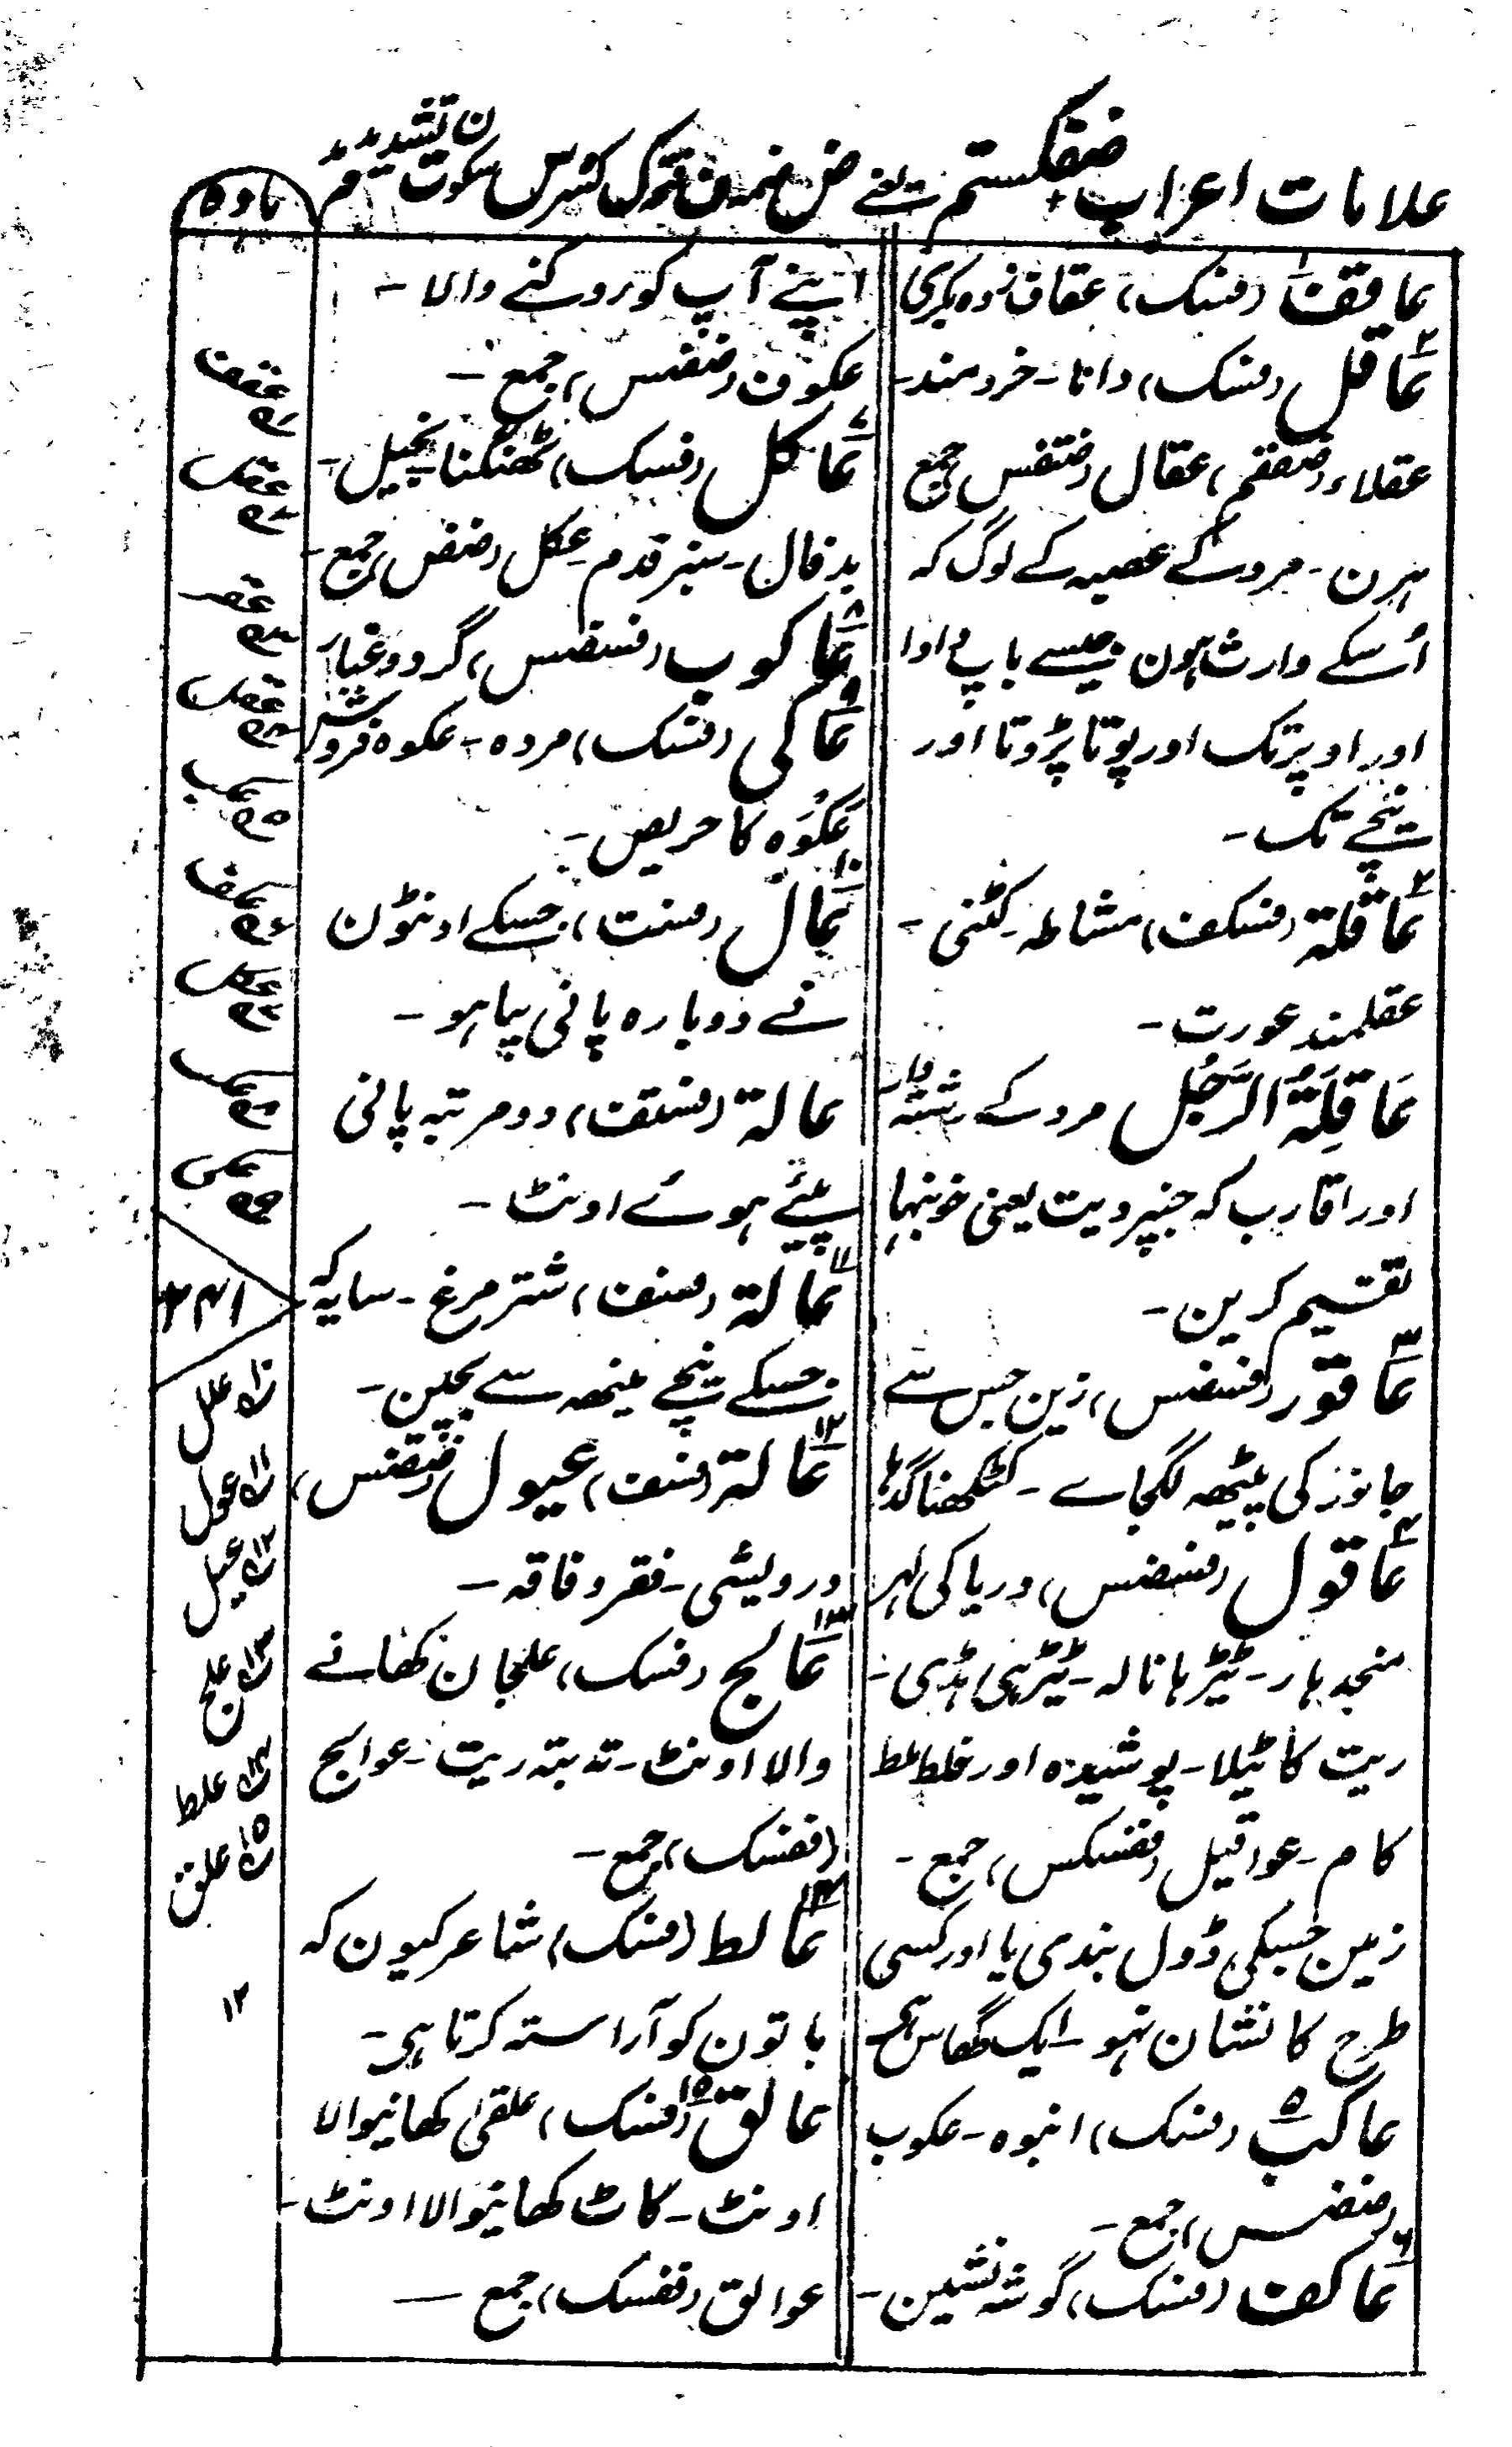 علامات اعراب ضفکستم یعنے ض ضمہ ف فتحہ ک کسرہ س سکون ت تشدید م مد
مادہ
عاقف (فسک) عقاف زدہ بکری
عاقل (فسک) دانا۔ خردمند۔
عقلاء (ضففم) عقال (ضتفس) جمع
ہرن۔ مرد کے عصبہ کے لوگ کہ
اُسکے وارث ہون جیسے باپ دادا
اور اوپر تک اور پوتا پڑوتا اور
نیچے تک۔
عاقلة (فسکف) مشاطہ۔ کٹنی۔
عقلمند عورت۔
عَاقِلَةُ الرَّجُل مرد کے رشتہ دار
اور اقارب کہ جنپر دیت یعنی خونبہا
تقسیم کرین۔
عاقور (فسضس) زین جس سے
جانور کی پیٹھہ لگجاے۔ کٹکھنا گدہا
عاقول (فسضس) دریا کی لہر
منجدہار۔ ٹیڑہا نالہ۔ ٹیڑہی ہڈی۔
ریت کا ٹیلا۔ پوشیدہ اور خلط ملط
کام۔ عواقیل (ففسکس) جمع۔
زمین جسکی ڈول بندی یا اور کسی
طرح کا نشان نہو۔ ایک گھاس ہی۔
عاکب (فسک) انبوہ۔ عکوب
(ضضس) جمع۔
عاکف (فسک) گوشہ نشین۔
اپنے آپ کو روکنے والا۔
عکوف (ضضس) جمع۔
عاکل (فسک) ٹھنگنا بخیل۔
بدفال۔ سبز قدم۔ عکل (ضفس) جمع۔
عاکوب (فسضس) گرد و غبار
عاکی (فسک) مردہ۔ عکوہ فروش
عَکْوَہ کا حریص۔
عال (فست) جسکے اونٹون
نے دوبارہ پانی پیا ہو۔
عالة (فستف) دو مرتبہ پانی
پیئے ہوئے اونٹ۔
عالة (فسف) شتر مرغ۔ سایہ کہ
جسکے نیچے مینھہ سے بچین۔
عالة (فسف) عیول (ضضس)
درویشی۔ فقر و فاقہ۔
عالج (فسک) علجان کھانے
والا اونٹ۔ تہ بتہ ریت۔ عوالج
(ففسک) جمع۔
عالط (فسک) شاعر کیون کہ
باتون کو آراستہ کرتا ہی۔
عالق (فسک) علقیٰ کھانیوالا
اونٹ۔ کاٹ کھانیوالا اونٹ۔
عوالق (ففسک) جمع
عقف
عقل
عقر
عقل
عکب
عکف
عکل
عکب
عکی
۲۴۱
۱۰ علل
۱۱ عول
۱۲ عیل
۱۳ علج
۱۴ علط
۱۵ علق
۱۲